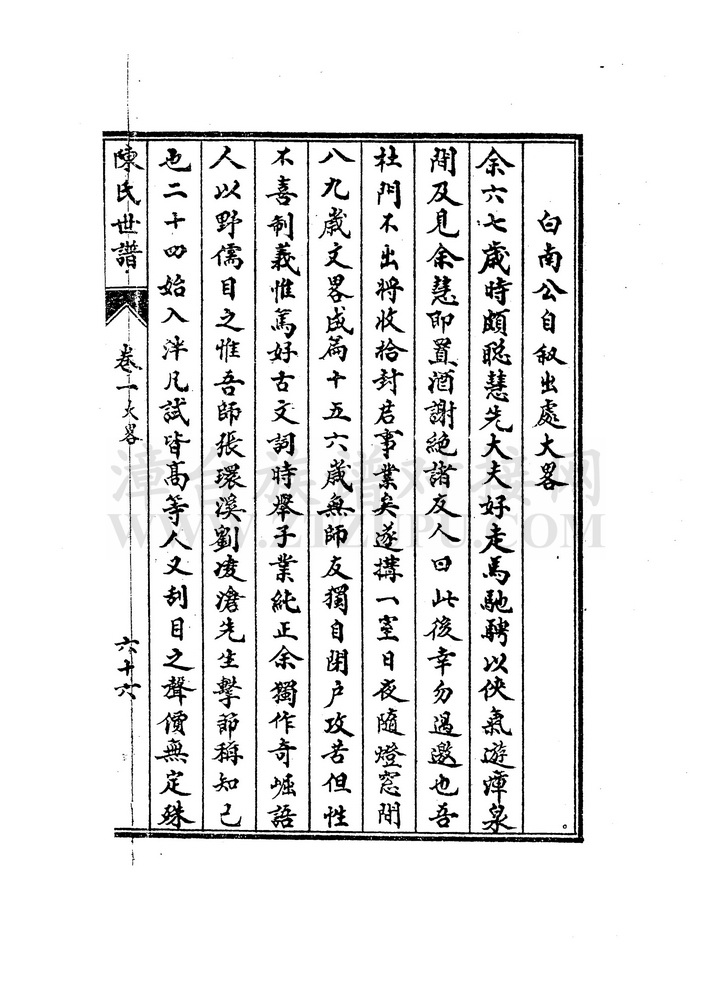 白南公自叙出處大畧
余六七歲時頗聡慧先大夫好走馬馳騁以俠氣遊漳泉
間及見余慧即置酒謝絶諸友人曰此後幸勿過邀也吾
杜門不出將收拾封君事業矣遂搆一室日夜隨燈窓間
八九歲文畧成篇十五六歲無師友獨自閉户攻苦但性
不喜制義惟篤好古文詞時舉子業純正余獨作奇崛語
人以野儒目之惟吾師張環溪劉凌滄先生擊節稱知己
也二十四始入泮凡試皆髙等人又刮目之聲價無定殊
陳氏世譜
卷一大畧
六十六
漳台族譜对接网
WWW.ZTZUPU.COM